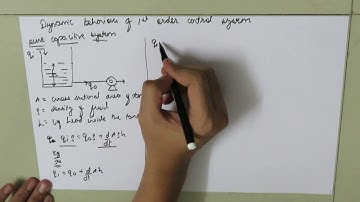 Dynamic behaviour of 1st order control system
pure capacitive system
qi
h
q0
A = cross sectional area of tank
ρ = density of fluid
h = liq head inside the tank
qi ρ = q0 ρ + d/dt A ρ h
qi = q0 + d/dt Ah
q